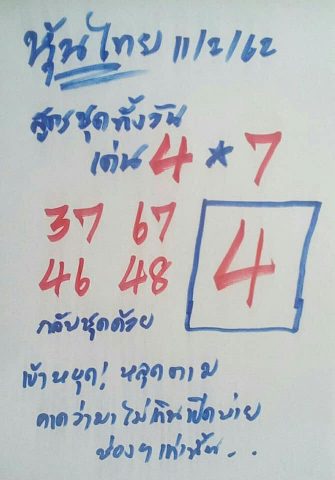 หุ้นไทย 11/2/62
สูตรชุดทั้งวัน
เด่น 4 * 7
37 67
46 48
4
กลับชุดด้วย
เข้าหยุด! หลุดตาม
คาดว่ามาไม่เกินเปิดบ่าย
ช่องๆเท่านั้น..